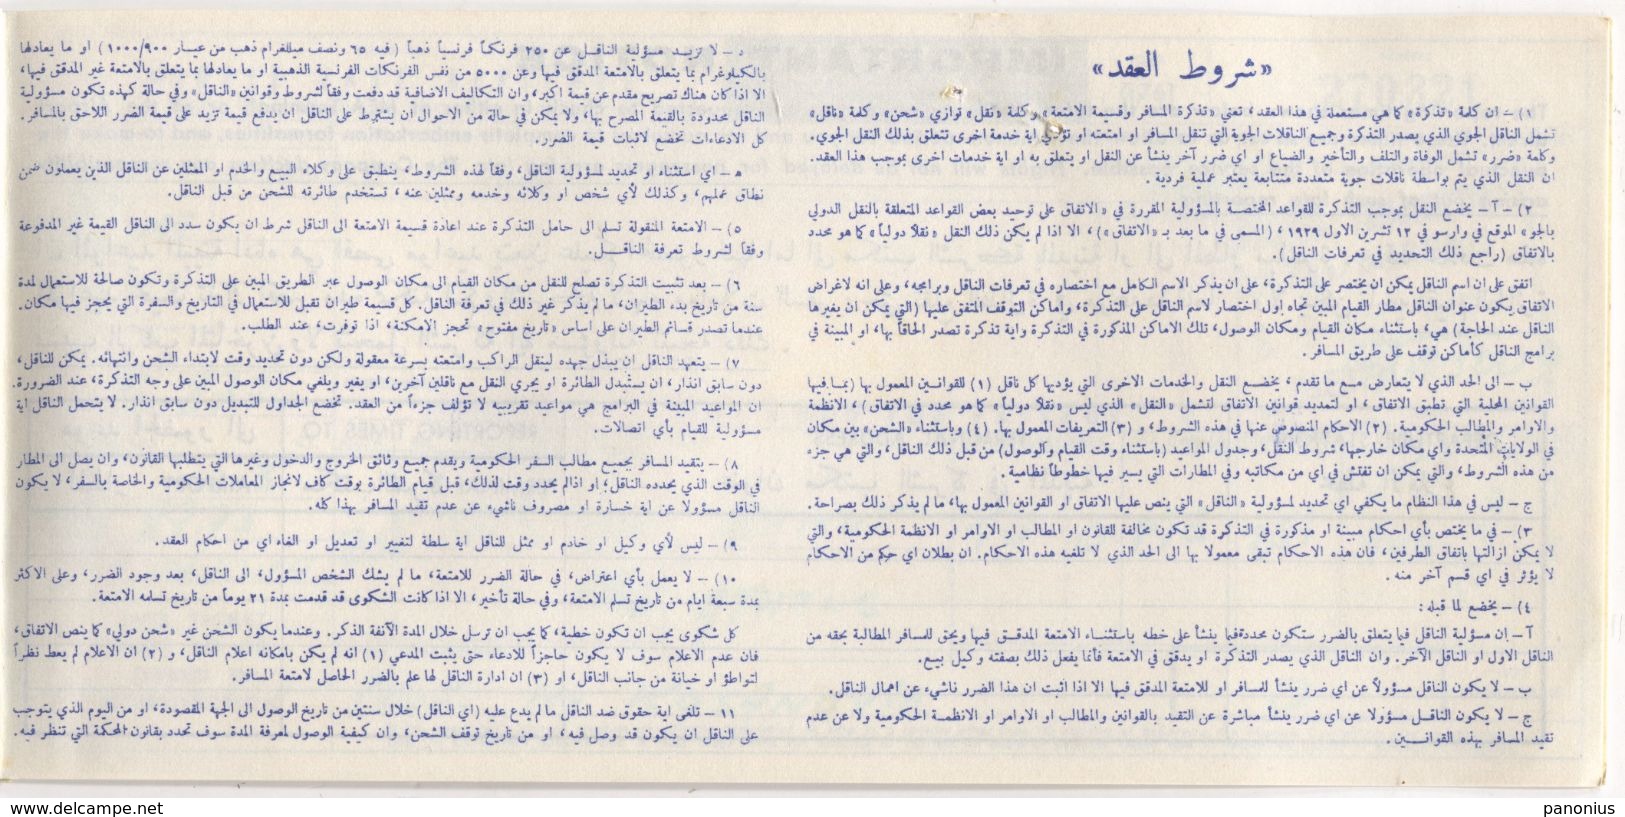 «شروط العقد»
١) – ان كلمة «تذكرة» كما هي مستعملة في هذا العقد، تعني «تذكرة المسافر وقسيمة الامتعة» وكلمة «نقل» توازي «شحن» وكلمة «ناقل»
تشمل الناقل الجوي الذي يصدر التذكرة وجميع الناقلات الجوية التي تنقل المسافر او امتعته او تؤدي اية خدمة اخرى تتعلق بذلك النقل الجوي.
وكلمة «ضرر» تشمل الوفاة والتلف والتأخير والضياع او اي ضرر آخر ينشأ عن النقل او يتعلق به او اية خدمات اخرى بموجب هذا العقد.
ان النقل الذي يتم بواسطة ناقلات جوية متعددة متتابعة يعتبر عملية فردية.
٢) – آ– يخضع النقل بموجب التذكرة للقواعد المختصة بالمسؤولية المقررة في «الاتفاق على توحيد بعض القواعد المتعلقة بالنقل الدولي
بالجو» الموقع في وارسو في ١٢ تشرين الاول ١٩٢٩، (المسمى في ما بعد بـ «الاتفاق»)، الا اذا لم يكن ذلك النقل «نقلاً دولياً» كما هو محدد
بالاتفاق (راجع ذلك التحديد في تعرفات الناقل).
اتفق على ان اسم الناقل يمكن ان يختصر على التذكرة، على ان يذكر الاسم الكامل مع اختصاره في تعرفات الناقل وبرامجه، وعلى انه لاغراض
الاتفاق يكون عنوان الناقل مطار القيام المبين تجاه اول اختصار لاسم الناقل على التذكرة، واماكن التوقف المتفق عليها (التي يمكن ان يغيرها
الناقل عند الحاجة) هي، باستثناء مكان القيام ومكان الوصول، تلك الاماكن المذكورة في التذكرة واية تذكرة تصدر الحاقاً بها، او المبينة في
برامج الناقل كأماكن توقف على طريق المسافر.
ب – الى الحد الذي لا يتعارض مع ما تقدم، يخضع النقل والخدمات الاخرى التي يؤديها كل ناقل (١) للقوانين المعمول بها (بما فيها
القوانين المحلية التي تطبق الاتفاق، او لتمديد قوانين الاتفاق لتشمل «النقل» الذي ليس «نقلاً دولياً» كما هو محدد في الاتفاق)، الانظمة
والاوامر والمطالب الحكومية. (٢) الاحكام المنصوص عنها في هذه الشروط، و (٣) التعريفات المعمول بها. (٤) وباستثناء «الشحن» بين مكان
في الولايات المتحدة واي مكان خارجها، شروط النقل، وجدول المواعيد (باستثناء وقت القيام والوصول) من قبل ذلك الناقل، والتي هي جزء
من هذه الشروط، والتي يمكن ان تفتش في اي من مكاتبه وفي المطارات التي يسير فيها خطوطاً نظامية.
ج – ليس في هذا النظام ما يكفي اي تحديد لمسؤولية «الناقل» التي ينص عليها الاتفاق او القوانين المعمول بها، ما لم يذكر ذلك بصراحة.
٣) – في ما يختص بأي احكام مبينة او مذكورة في التذكرة قد تكون مخالفة للقانون او المطالب او الاوامر او الانظمة الحكومية، والتي
لا يمكن ازالتها باتفاق الطرفين، فان هذه الاحكام تبقى معمولا بها الى الحد الذي لا تلغيه هذه الاحكام. ان بطلان اي حكم من الاحكام
لا يؤثر في اي قسم آخر منه.
٤) – يخضع لما قبله:
آ – ان مسؤلية الناقل فيما يتعلق بالضرر ستكون محددة فيما ينشأ على خطه باستثناء الامتعة المدقق فيها ويحق للمسافر المطالبة بحقه من
الناقل الاول او الناقل الآخر. وان الناقل الذي يصدر التذكرة او يدقق في الامتعة فأنما يفعل ذلك بصفته وكيل بيع.
ب – لا يكون الناقل مسؤولاً عن اي ضرر ينشأ للمسافر او للامتعة المدقق فيها الا اذا اثبت ان هذا الضرر ناشيء عن اهمال الناقل.
ج – لا يكون الناقل مسؤولا عن اي ضرر ينشأ مباشرة عن التقيد بالقوانين والمطالب او الاوامر او الانظمة الحكومية ولا عن عدم
تقيد المسافر بهذه القوانين.
د – لا تزيد مسؤلية الناقل عن ٢٥٠ فرنكاً فرنسياً ذهباً (فيه ٦٥ ونصف ميللغرام ذهب من عيار ١٠٠٠/٩٠٠) او ما يعادلها
بالكيلوغرام بما يتعلق بالامتعة المدقق فيها وعن ٥٠٠٠ من نفس الفرنكات الفرنسية الذهبية او ما يعادلها بما يتعلق بالامتعة غير المدقق فيها،
الا اذا كان هناك تصريح مقدم عن قيمة اكبر، وان التكاليف الاضافية قد دفعت وفقاً لشروط وقوانين «الناقل» وفي حالة كهذه تكون مسؤولية
الناقل محدودة بالقيمة المصرح بها، ولا يمكن في حال من الاحوال ان يشترط على الناقل ان يدفع قيمة تزيد على قيمة الضرر اللاحق بالمسافر.
كل الادعاءات تخضع لاثبات قيمة الضرر.
ه – اي استثناء او تحديد لمسؤولية الناقل، وفقاً لهذه الشروط، ينطبق على وكلاء البيع والخدم او الممثلين عن الناقل الذين يعملون ضمن
نطاق عملهم، وكذلك لأي شخص او وكلائه وخدمه وممثلين عنه، تستخدم طائرته للشحن من قبل الناقل.
٥) – الامتعة المنقولة تسلم الى حامل التذكرة عند اعادة قسيمة الامتعة الى الناقل شرط ان يكون سدد الى الناقل القيمة غير المدفوعة
وفقاً لشروط تعرفة الناقل.
٦) – بعد تثبيت التذكرة تصلح للنقل من مكان القيام الى مكان الوصول عبر الطريق المبين على التذكرة وتكون صالحة للاستعمال لمدة
سنة من تاريخ بدء الطيران، ما لم يذكر غير ذلك في تعرفة الناقل. كل قسيمة طيران تقبل للاستعمال في التاريخ والسفرة التي يحجز فيها مكان.
عندما تصدر قسائم الطيران على اساس «تاريخ مفتوح» تحجز الامكنة، اذا توفرت، عند الطلب.
٧) – يتعهد الناقل ان يبذل جهده لينقل الراكب وامتعته بسرعة معقولة ولكن دون تحديد وقت لابتداء الشحن وانتهائه. يمكن للناقل،
دون سابق انذار، ان يستبدل الطائرة او يجري النقل مع ناقلين آخرين، او يغير ويلغي مكان الوصول المبين على وجه التذكرة، عند الضرورة.
ان المواعيد المبينة في البرامج هي مواعيد تقريبيه لا تؤلف جزءاً من العقد. تخضع الجداول للتبديل دون سابق انذار. لا يتحمل الناقل اية
مسؤولية للقيام بأي اتصالات.
٨) – يتقيد المسافر بجميع مطالب السفر الحكومية ويقدم جميع وثائق الخروج والدخول وغيرها التي يتطلبها القانون، وان يصل الى المطار
في الوقت الذي يحدده الناقل؛ او اذا لم يحدد وقت لذلك، قبل قيام الطائرة بوقت كاف لانجاز المعاملات الحكومية والخاصة بالسفر، لا يكون
الناقل مسؤولا عن اية خسارة او مصروف ناشيء عن عدم تقيد المسافر بهذا كله.
٩) – ليس لأي وكيل او خادم او ممثل للناقل اية سلطة لتغيير او تعديل او الغاء اي من احكام العقد.
١٠) – لا يعمل بأي اعتراض، في حالة الضرر للامتعة، ما لم يشك الشخص المسؤول، الى الناقل، بعد وجود الضرر، وعلى الاكثر
بمدة سبعة ايام من تاريخ تسلم الامتعة، وفي حالة تأخير، الا اذا كانت الشكوى قد قدمت بمدة ٢١ يوماً من تاريخ تسلمه الامتعة.
كل شكوى يجب ان تكون خطية، كما يجب ان ترسل خلال المدة الآنفة الذكر. وعندما يكون الشحن غير «شحن دولي» كما ينص الاتفاق،
فان عدم الاعلام سوف لا يكون حاجزاً للادعاء حتى يثبت المدعي (١) انه لم يكن بامكانه اعلام الناقل، و (٢) ان الاعلام لم يعط نظراً
لتواطؤ او خيانة من جانب الناقل، او (٣) ان ادارة الناقل لها علم بالضرر الحاصل لامتعة المسافر.
١١ – تلغى اية حقوق ضد الناقل ما لم يدع عليه (اي الناقل) خلال سنتين من تاريخ الوصول الى الجهة المقصودة، او من اليوم الذي يتوجب
على الناقل ان يكون قد وصل فيه، او من تاريخ توقف الشحن، وان كيفية الوصول لمعرفة المدة سوف تحدد بقانون المحكمة التي تنظر فيه.
www.delcampe.net
panonius